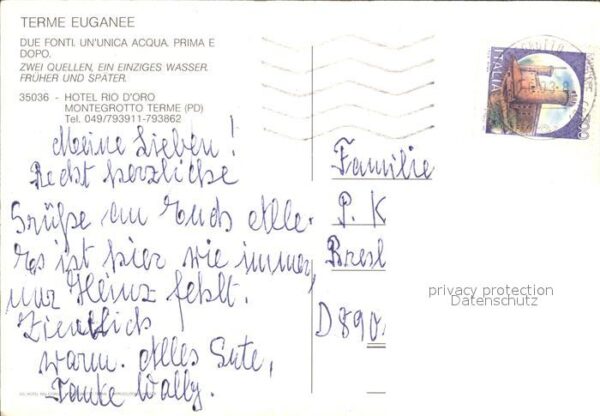 TERME EUGANEE
DUE FONTI. UN'UNICA ACQUA. PRIMA E
DOPO.
ZWEI QUELLEN, EIN EINZIGES WASSER.
FRÜHER UND SPÄTER.
35036 - HOTEL RIO D'ORO
MONTEGROTTO TERME (PD)
Tel. 049/793911-793862
Meine Lieben!
Recht herzliche
Grüße an Euch Alle.
Es ist hier wie immer,
nur Heinz fehlt.
Ziemlich
warm. Alles Gute,
Tante Wally.
Familie
P. K
Bresl
D 890
ITALIA
privacy protection
Datenschutz